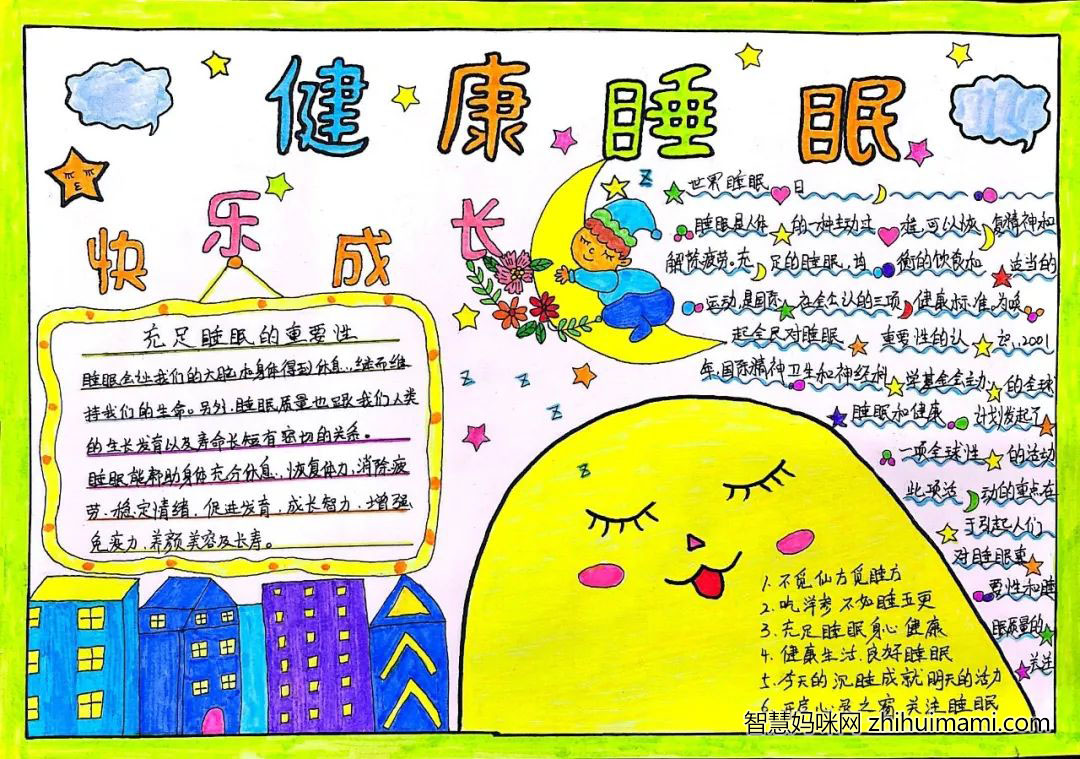 健康睡眠
快乐成长
充足睡眠的重要性
睡眠会让我们的大脑和身体得到休息,继而维
持我们的生命。另外,睡眠质量也跟我们人类
的生长发育以及寿命长短有密切的关系。
睡眠能帮助身体充分休息,恢复体力,消除疲
劳、稳定情绪,促进发育,成长智力,增强
免疫力,养颜美容及长寿。
世界睡眠日
睡眠是人体的一种主动过
程,可以恢复精神和
解除疲劳。充足的睡眠、均衡的饮食和适当的
运动,是国际社会公认的三项健康标准。为唤
起全民对睡眠重要性的认识,2001
年,国际精神卫生和神经科学基金会主办的全球
睡眠和健康计划发起了
一项全球性的活动
此项活动的重点在
于引起人们
对睡眠重
要性和睡
眠质量的
关注
1.不觅仙方觅睡方
2.吃洋参不如睡五更
3.充足睡眠身心健康
4.健康生活,良好睡眠
5.今天的沉睡成就明天的活力
6.开启心灵之窗关注睡眠
智慧妈咪网 zhihuimami.com